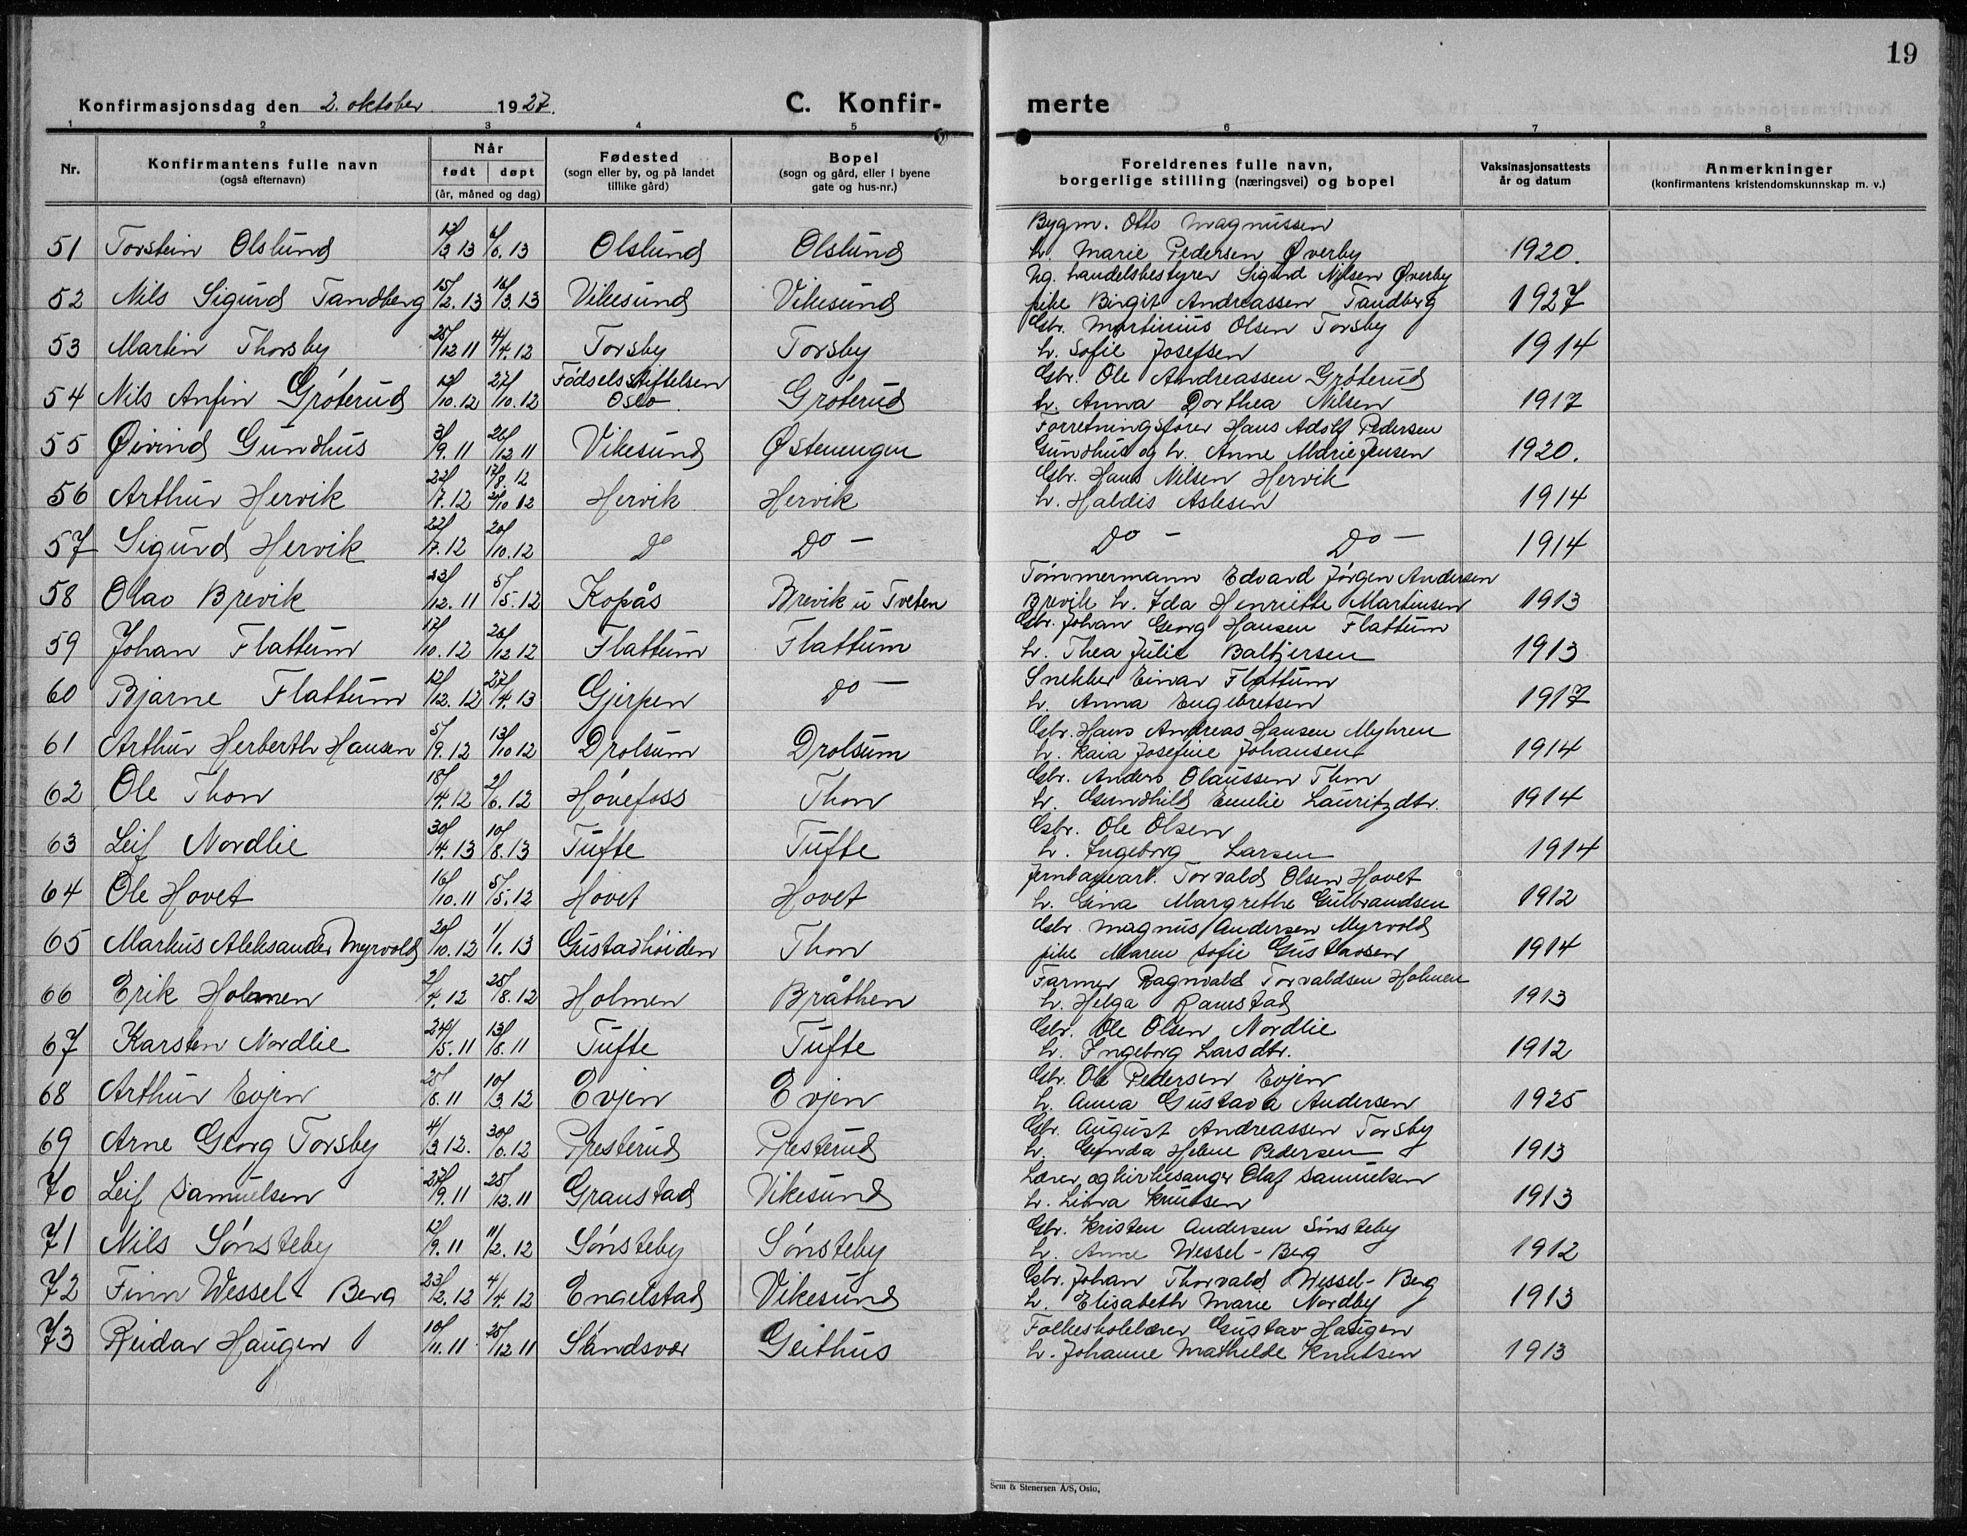 19
Konfirmasjonsdag den 2. oktober 1927.
C. Konfir-
merte
1 2 3 4 5 6 7 8
Nr. Konfirmantens fulle navn (også efternavn) Når født døpt (år, måned og dag) Fødested (sogn eller by, og på landet tillike gård) Bopel (sogn og gård, eller i byene gate og hus-nr.) Foreldrenes fulle navn, borgerlige stilling (næringsvei) og bopel Vaksinasjonsattests år og datum Anmerkninger (konfirmantens kristendomskunnskap m. v.)
Bygm. Otto Magnussen
51 Torstein Olslund 13/3 13 6/6. 13 Olslund Olslund h. Marie Pedersen Øverby 1920.
Ug. handelsbestyrer Sigurd Nilsen Øverby
52 Nils Sigurd Tandberg 15/2. 13 16/3. 13 Vikesund Vikesund pike Birgit Andreassen Tandberg 1927
Gbr. Martinius Olsen Torsby
53 Martin Thorsby 25/12 11 4/4. 12 Torsby Torsby h. Sofie Josefsen 1914
Gbr. Ole Andreassen Grøterud
54 Nils Anfin Grøterud 13/10. 12 27/10. 12 Fødselsstiftelsen Oslo. Grøterud h. Anna Dorthea Nilsen 1917
Forretningsfører Hans Adolf Pedersen
55 Øivind Gundhus 3/9. 11 26/12 11 Vikesund Østenengen Gundhus og h. Anne Marie Jensen 1920.
Gbr. Hans Nilsen Hervik
56 Arthur Hervik 22/7. 12 17/8. 12 20/10 12 Hervik Hervik h. Haldis Aslesen 1914
57 Sigurd Hervik 22/7. 12 20/10. 12 Do Do - Do - Do - 1914
Tømmermann Edvard Jørgen Andersen
58 Olav Brevik 23/12. 11 5/5. 12 Kopås Brevik u Tveten Brevik h. Ida Henriette Martinsen 1913
Gbr. Johan Georg Hansen Flattum
59 Johan Flattum 17/10. 12 26/12 12 Flattum Flattum h. Thea Julie Baltzersen 1913
Snekker Einar Flattum
60 Bjarne Flattum 12/12. 12 27/4. 13 Gjerpen Do - h. Anna Engebretsen 1917
Gbr. Hans Andreas Hansen Myhren
61 Arthur Herberth Hansen 5/9. 12 13/10 12 Drolsum Drolsum h. Kaia Josefine Johansen 1914
Gbr. Anders Olaussen Thon
62 Ole Thon 18/4. 12 2/6. 12 Hønefoss Thon h. Gundhild Emelie Lauritzdtr. 1914
Gbr. Ole Olsen
63 Leif Nordlie 30/4. 13 10/8. 13 Tufte Tufte h. Ingeborg Larsen 1914
Jernbanearb. Torvald Olsen Hovet
64 Ole Hovet 16/10. 11 5/5. 12 Hovet Hovet h. Gina Margrethe Gulbrandsen 1912
Gbr. Magnus Andersen Myrvold
65 Markus Aleksander Myrvold 20/10. 12 1/1. 13 Gustadhøiden Thon pike Maren Sofie Gustavsen 1914
Farmer Ragnvald Torvaldsen Holmen
66 Erik Holmen 2/4. 12 25/8. 12 Holmen Bråthen h. Helga Ramstad 1913
Gbr. Ole Olsen Nordlie
67 Karsten Nordlie 24/5. 11 13/8. 11 Tufte Tufte h. Ingeborg Larsdtr. 1912
Gbr. Ole Pedersen Evjen
68 Arthur Evjen 25/8. 11 10/3. 12 Evjen Evjen h. Anna Gustava Andersen 1925
Gbr. August Andreassen Torsby
69 Arne Georg Torsby 4/3 12. 30/6. 12 Presterud Presterud h. Gunda Helene Pedersen 1913
Lærer og kirkesanger Olaf Samuelsen
70 Leif Samuelsen 27/9. 11 25/12. 11 Granstad Vikesund h. Libra Knutsen 1913
Gbr. Kristen Andersen Sønsteby
71 Nils Sønsteby 12/9. 11 11/2. 12 Sønsteby Sønsteby h. Anne Wessel-Berg 1912
Gbr. Johan Thorvald Wessel-Berg
72 Finn Wessel-Berg 23/2. 12 4/4. 12 Engelstad Vikesund h. Elisabeth Marie Nordby 1913
Folkeskolelærer Gustav Haugen
73 Reidar Haugen 10/11. 11 25/12 11 Sandsvær Geithus h. Johanne Mathilde Knutsen 1913
Sem & Stenersen A/S, Oslo.